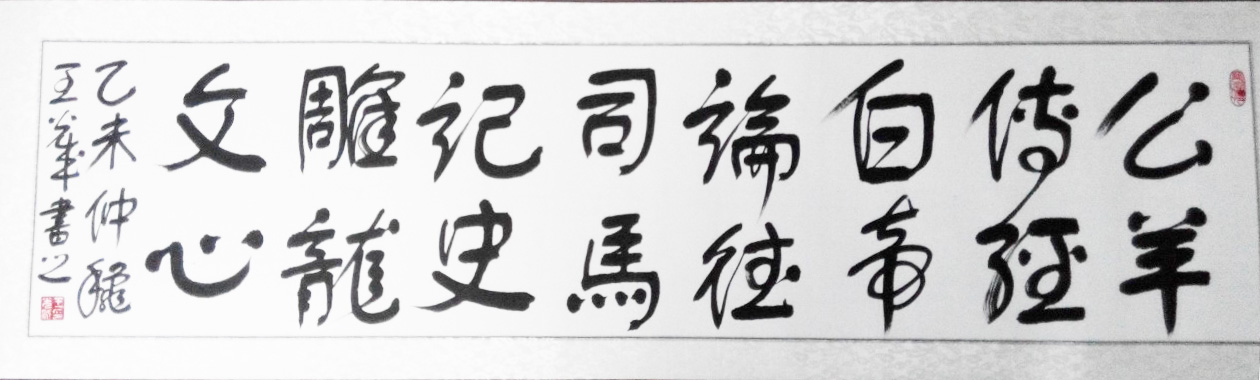 公羊
傳經
白帝
論往
司馬
記史
雕龍
文心
乙未仲龝
王華書之